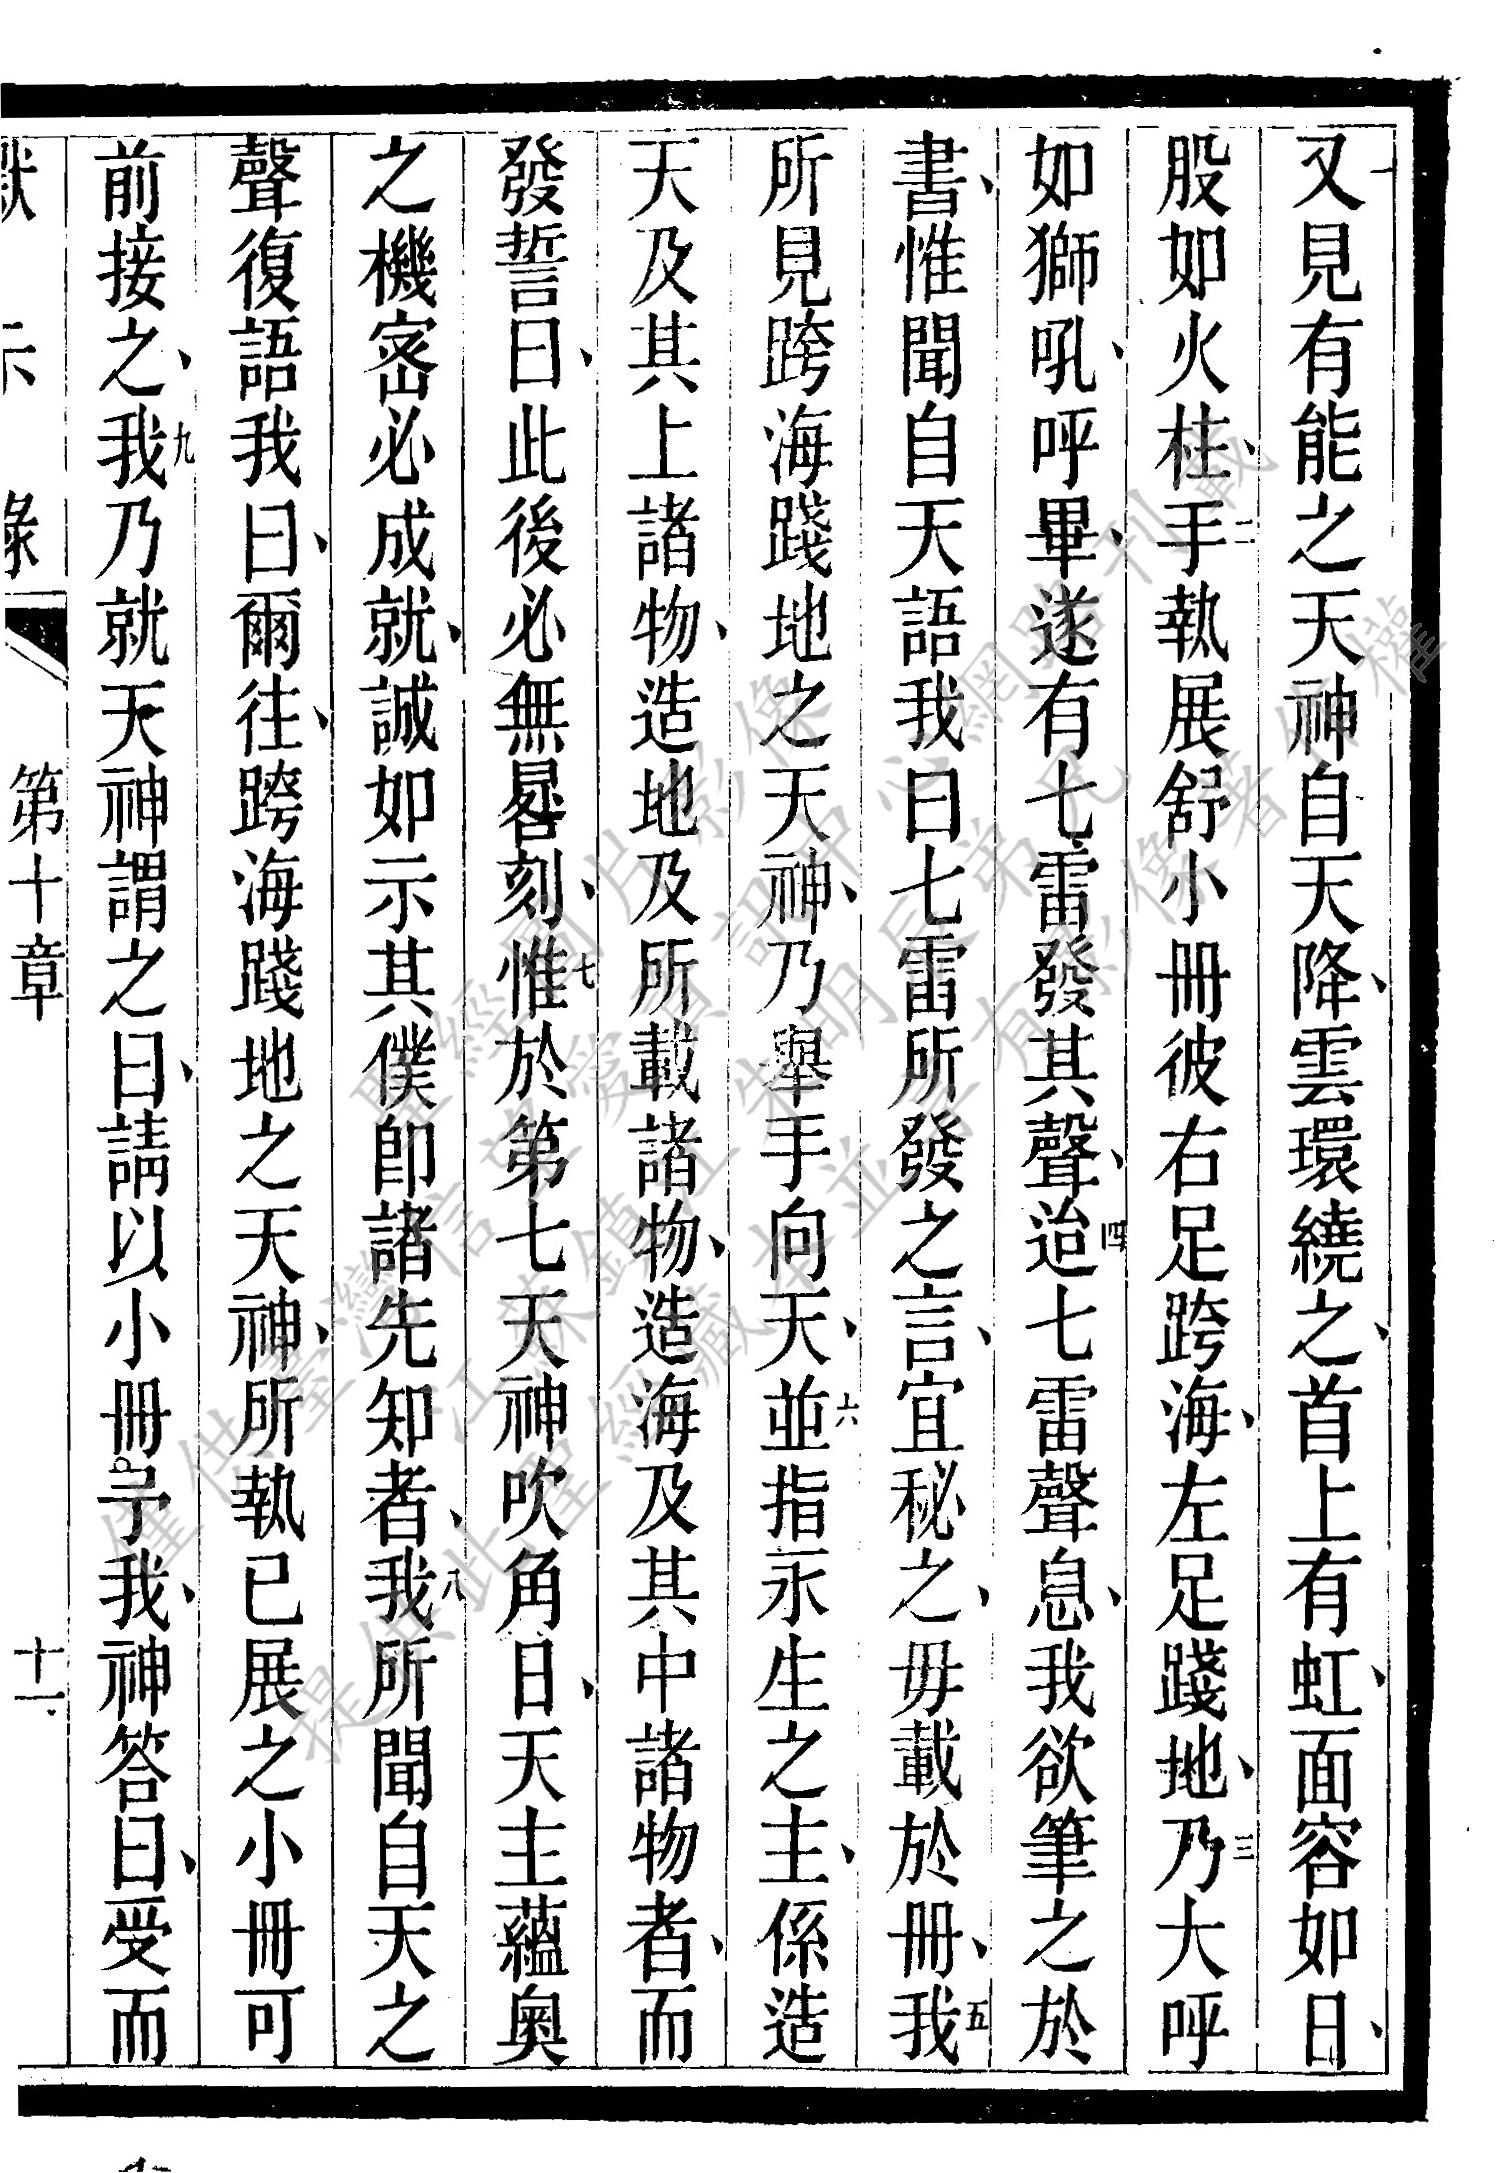 一又見有能之天神自天降、雲環繞之、首上有虹、面容如日、
股如火桂、二手執展舒小冊彼右足跨海、左足踐地、三乃大呼
如獅吼、呼畢、遂有七雷發其聲、四迨七雷聲息、我欲筆之於
書、惟聞自天語我曰七雷所發之言、宜秘之、毋載於冊、五我
所見跨海踐地之天神、乃舉手向天、六並指永生之主、係造
天及其上諸物、造地及所載諸物、造海及其中諸物者、而
發誓曰、此後必無晷刻、七惟於第七天神吹角日、天主蘊奧
之機密必成就、誠如示其僕卽諸先知者、八我所聞自天之
聲復語我曰、爾往、跨海踐地之天神、所執已展之小冊可
前接之、九我乃就天神謂之曰、請以小冊予我、神答曰、受而
默示錄 第十章 十一